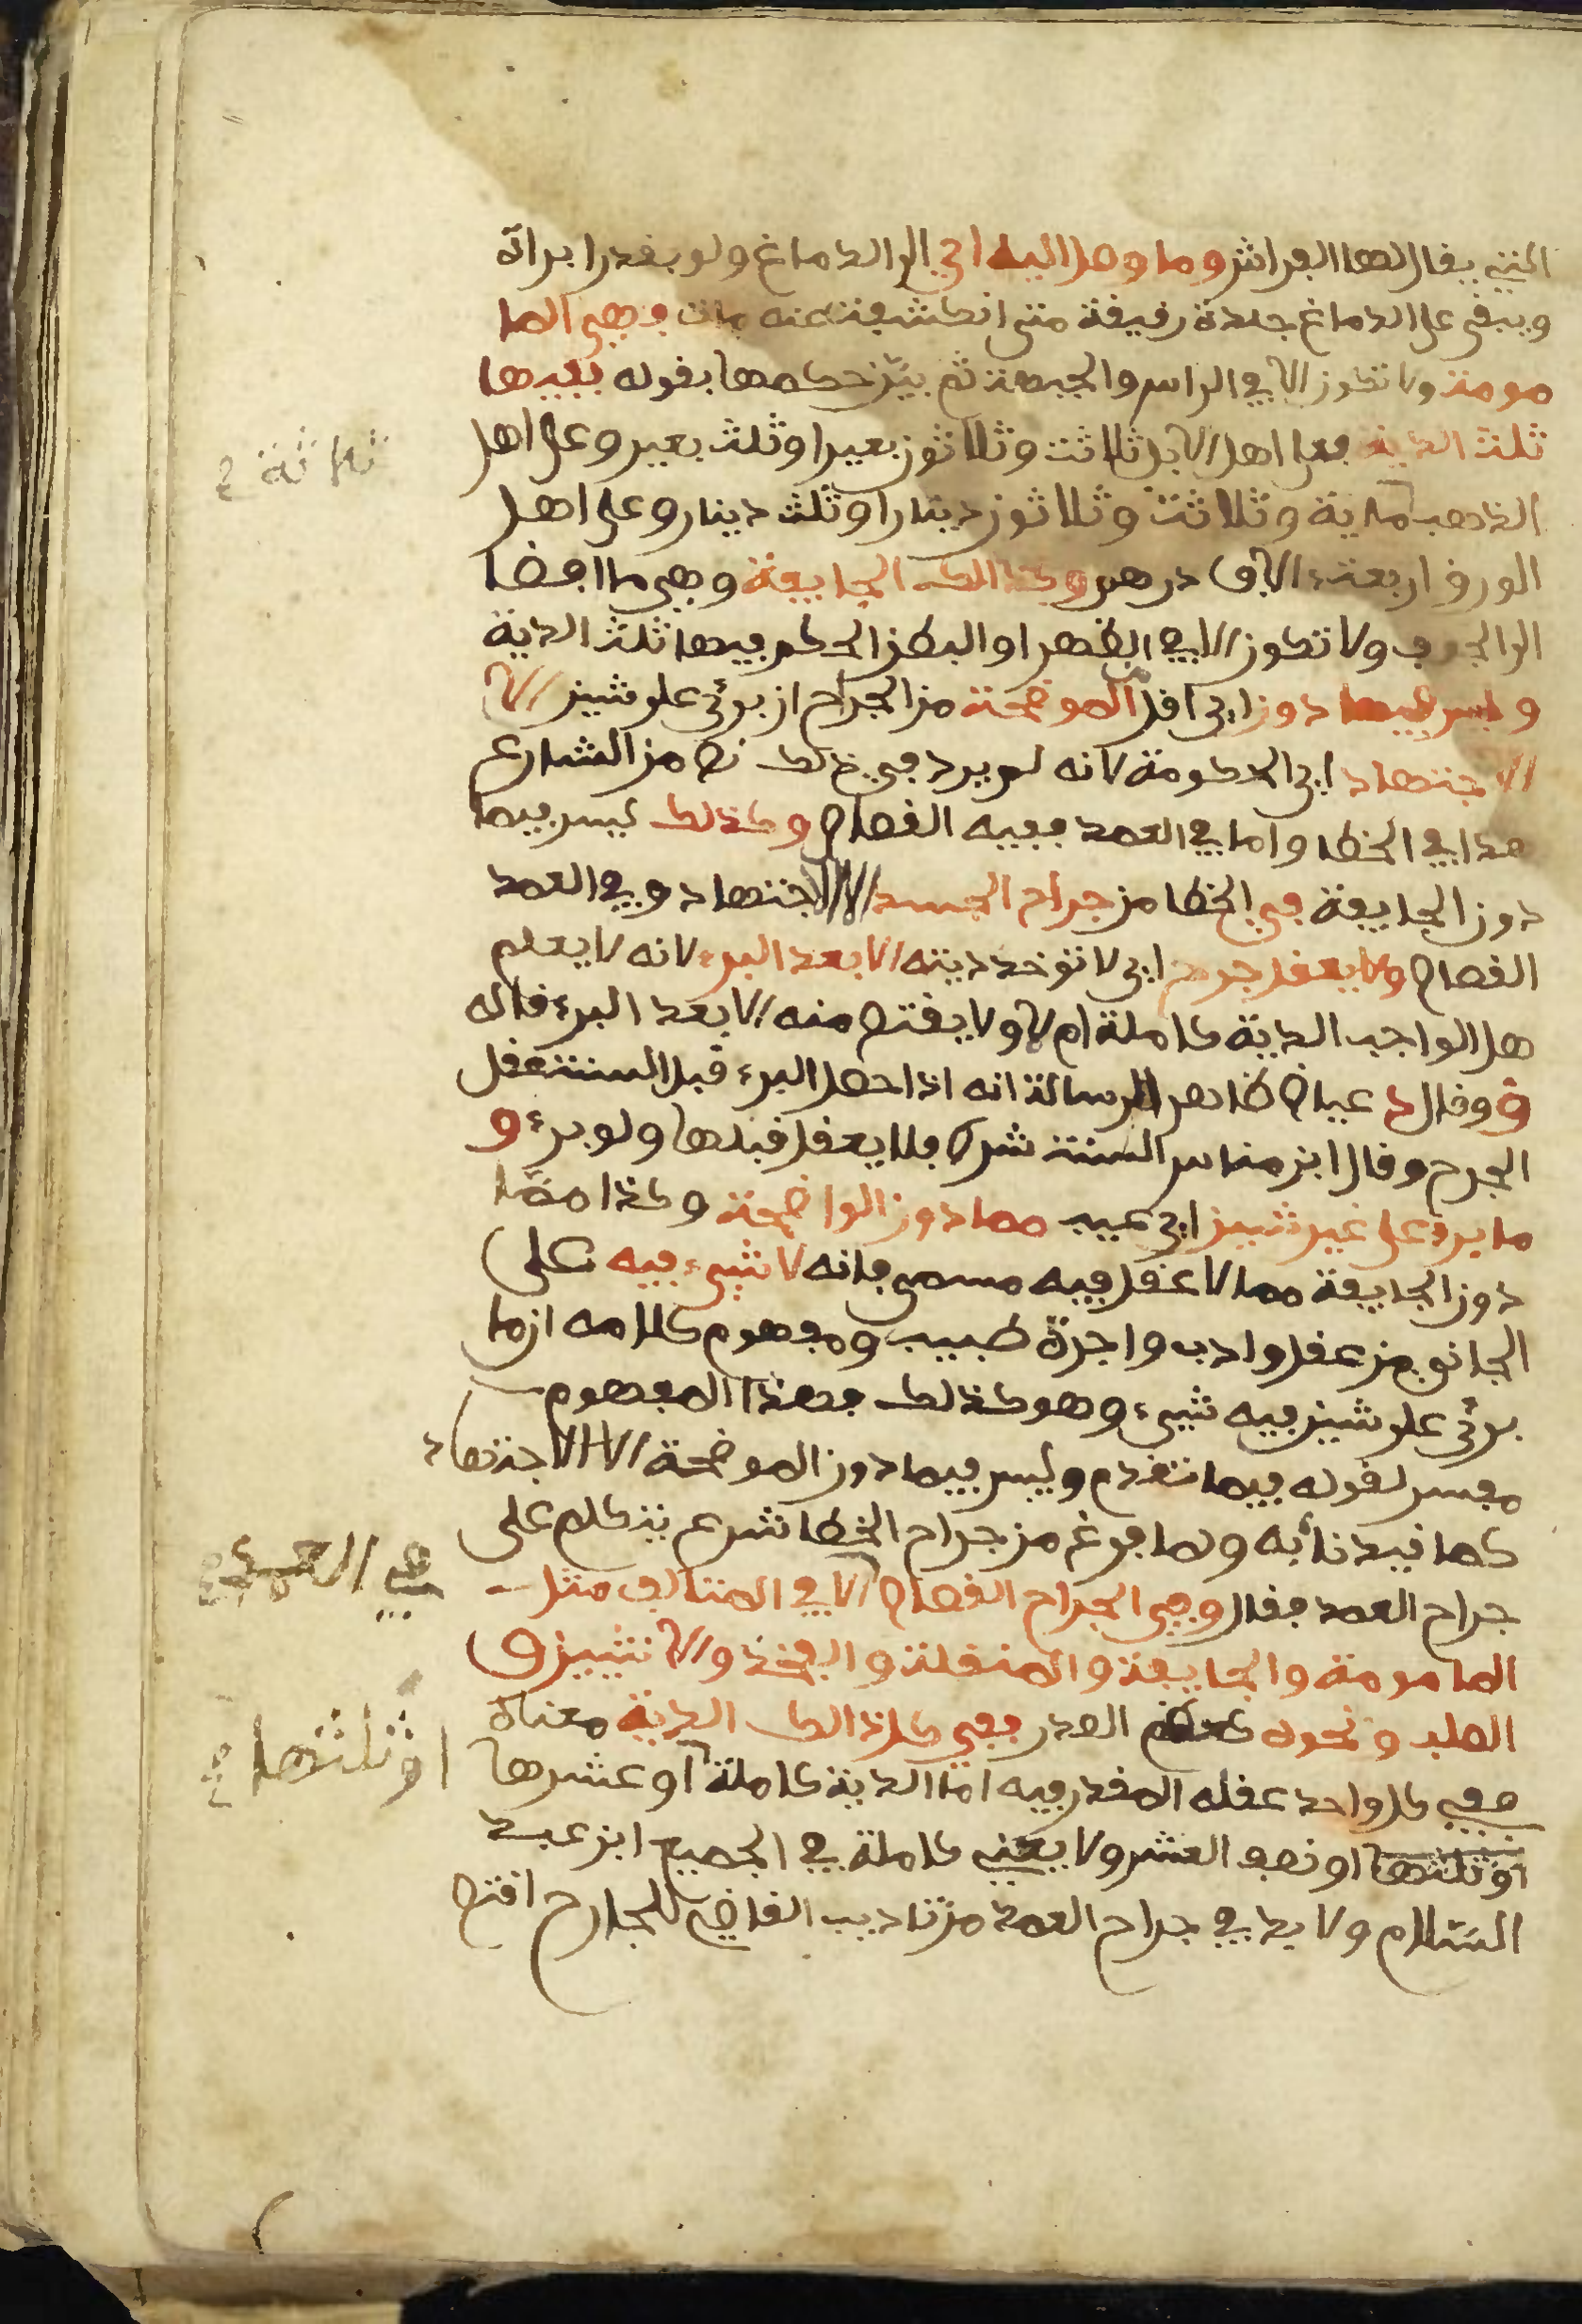 التي يقال لها الفراش وما وصل اليه اي الى الدماغ ولو بقدر ابراة
ويبقى على الدماغ جلدة رقيقة متى انكشفت عنه مات فهي الما
مومة ولا تكون الا في الراس والجبهة ثم بين حكمها بقوله ففيها
ثلث الدية فعلى اهل الابل ثلاثة وثلاثون بعيرا وثلث بعير وعلى اهل
الذهب ماية وثلاثت وثلاثون دينارا وثلث دينار وعلى اهل
الورق اربعة ءالاف درهم وكذالك الجايفة وهي ما افضا
الى الجوف ولا تكون الا في الظهر او البطن الحكم فيها ثلث الدية
وليس فيما دون اي اقل من الموضحة من الجراح ان برئ على شين الا
الاجتهاد اي الحكومة لانه لم يرد في ذلك نص من الشارع
هذا في الخطا واما في العمد ففيه القصاص وكذلك ليس فيما
دون الجايفة في الخطا من جراح الجسد الا الاجتهاد وفي العمد
القصاص ولا يعقل جرح اي لا تؤخذ ديته الا بعد البرء لانه لا يعلم
هل الواجب الدية كاملة ام لا ولا يقتص منه الا بعد البرء قاله
ق وقال د عياض ظاهر الرسالة انه اذا حصل البرء قبل السنة عقل
الجرح وقال ابن مناس السنة شرط فلا يعقل قبلها ولو برء و
ما برئ على غير شين اي عيب مما دون الواضحة وكذا مما
دون الجايفة مما لا عقل فيه مسمى فانه لا شيء فيه على
الجاني من عقل وادب واجرة طبيب ومفهوم كلامه ان ما
برئ على شين فيه شيء وهو كذلك فهذا المفهوم
مفسر لقوله فيما تقدم وليس فيما دون الموضحة الا الاجتهاد
كما قيدنا به ولما فرغ من جراح الخطا شرع يتكلم على
جراح العمد فقال وفي الجراح القصاص الا في المتالف مثل
المامومة والجايفة والمنقلة والفخذ والانثيين و
الصلب ونحوه كعظم الصدر ففي كل ذالك الدية معناه
ففي كل واحد عقله المقدر فيه اما الدية كاملة او عشرها
او ثلثها او نصف العشر ولا يعني كاملة في الجميع ابن عبد
السلام ولا بد في جراح العمد من تاديب القاضي للجارح اقتص
ثلاثة
في العمد
او ثلثها